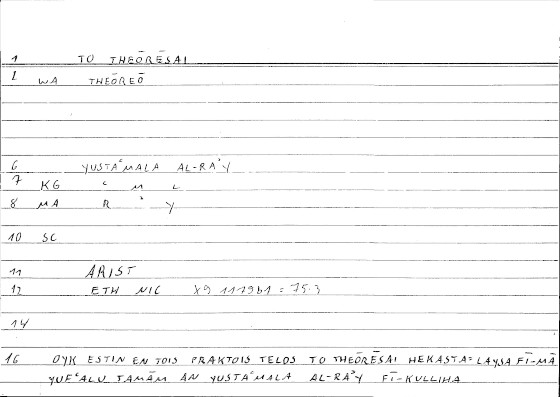 1 TO THEŌRĒSAI
2 WA THEŌREŌ
6 YUSTAʿMALA AL-RAʾY
7 KG ʿ M L
8 MA R ʾ Y
10 SC
11 ARIST
12 ETH NIC X9 1179b1 = 75.3
14
16 OYK ESTIN EN TOIS PRAKTOIS TELOS TO THEŌRĒSAI HEKASTA = LAYSA FĪ-MĀ
YUFʿALU TAMĀM AN YUSTAʿMALA AL-RAʾY FĪ-KULLIHA